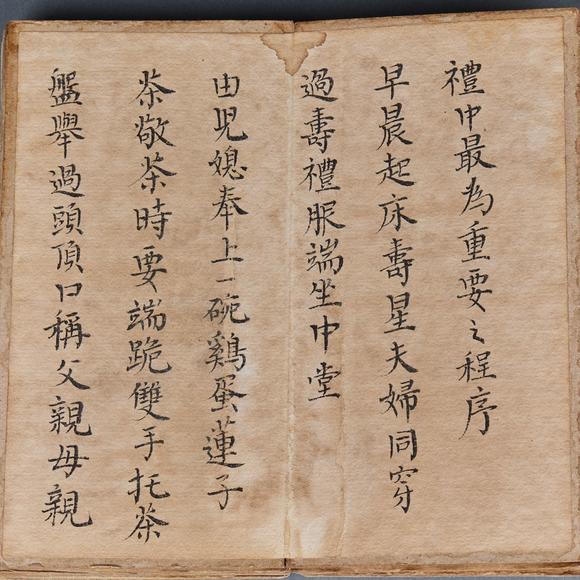 禮中最為重要之程序
早晨起床壽星夫婦同穿
過壽禮服端坐中堂
由児媳奉上一碗鷄蛋蓮子
茶敬茶時要端跪雙手托茶
盤舉過頭頂口稱父親母親